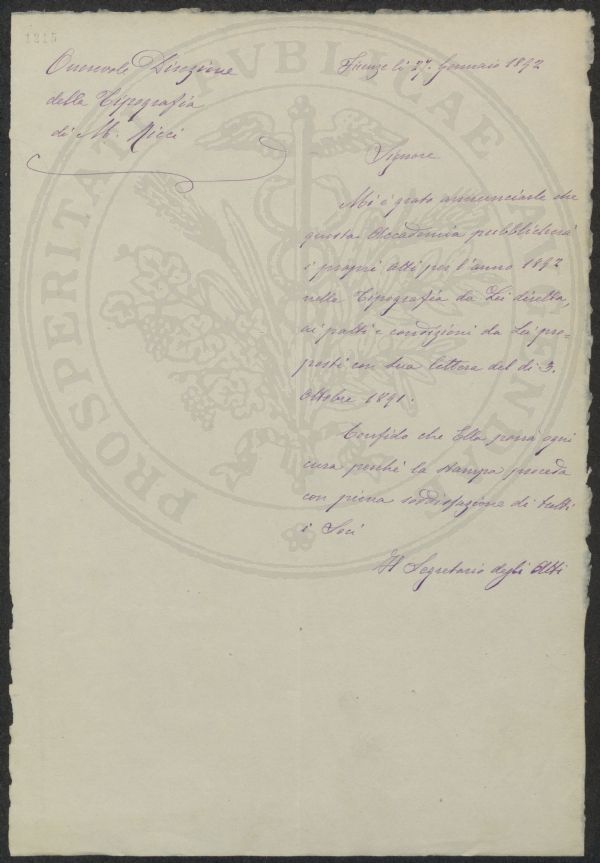 1215
Onorevole Direzione
della Tipografia
di M. Ricci
Firenze li 27. Gennaio 1892
Signore
Mi è grato annunciarle che
questa Accademia pubblicherà
i propri Atti per l'anno 1892
nella Tipografia da Lei diretta,
ai patti e condizioni da Lei pro-
posti con sua lettera del dì 3.
Ottobre 1891.
Confido che Ella porrà ogni
cura perché la stampa proceda
con piena soddisfazione di tutti
i Soci
Il Segretario degli Atti
PROSPERITATI PUBLICAE AUGENDAE